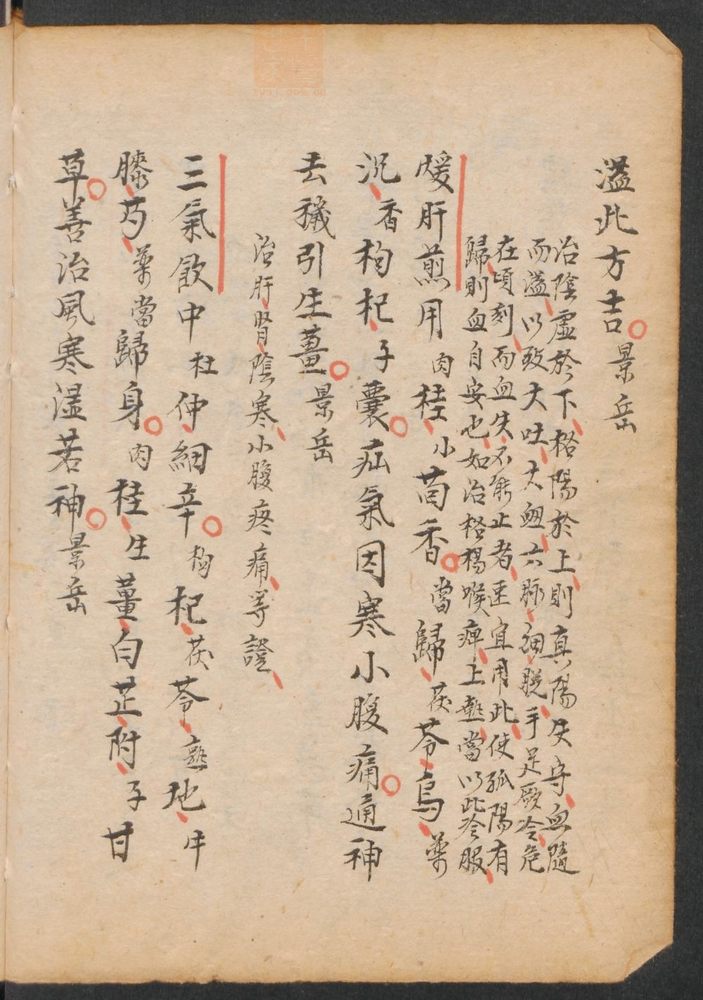 溢此方吉景岳
治陰虛於下格陽於上則真陽失守血隨
而溢以致大吐大衂六脉細脱手足厥冷危
在頃刻而血失不能止者速宜用此使孤陽有
歸則血自安也如治格楊喉痺上熱當以此冷服
煖肝煎用肉桂小茴香當歸茯苓烏藥
沉香枸杞子囊疝氣因寒小腹痛通神
去穢引生薑景岳
治肝腎陰寒小腹疼痛等證
三氣飲中杜仲細辛枸杞茯苓熟地牛
膝芍藥當歸身肉桂生薑白芷附子甘
草善治風寒濕若神景岳